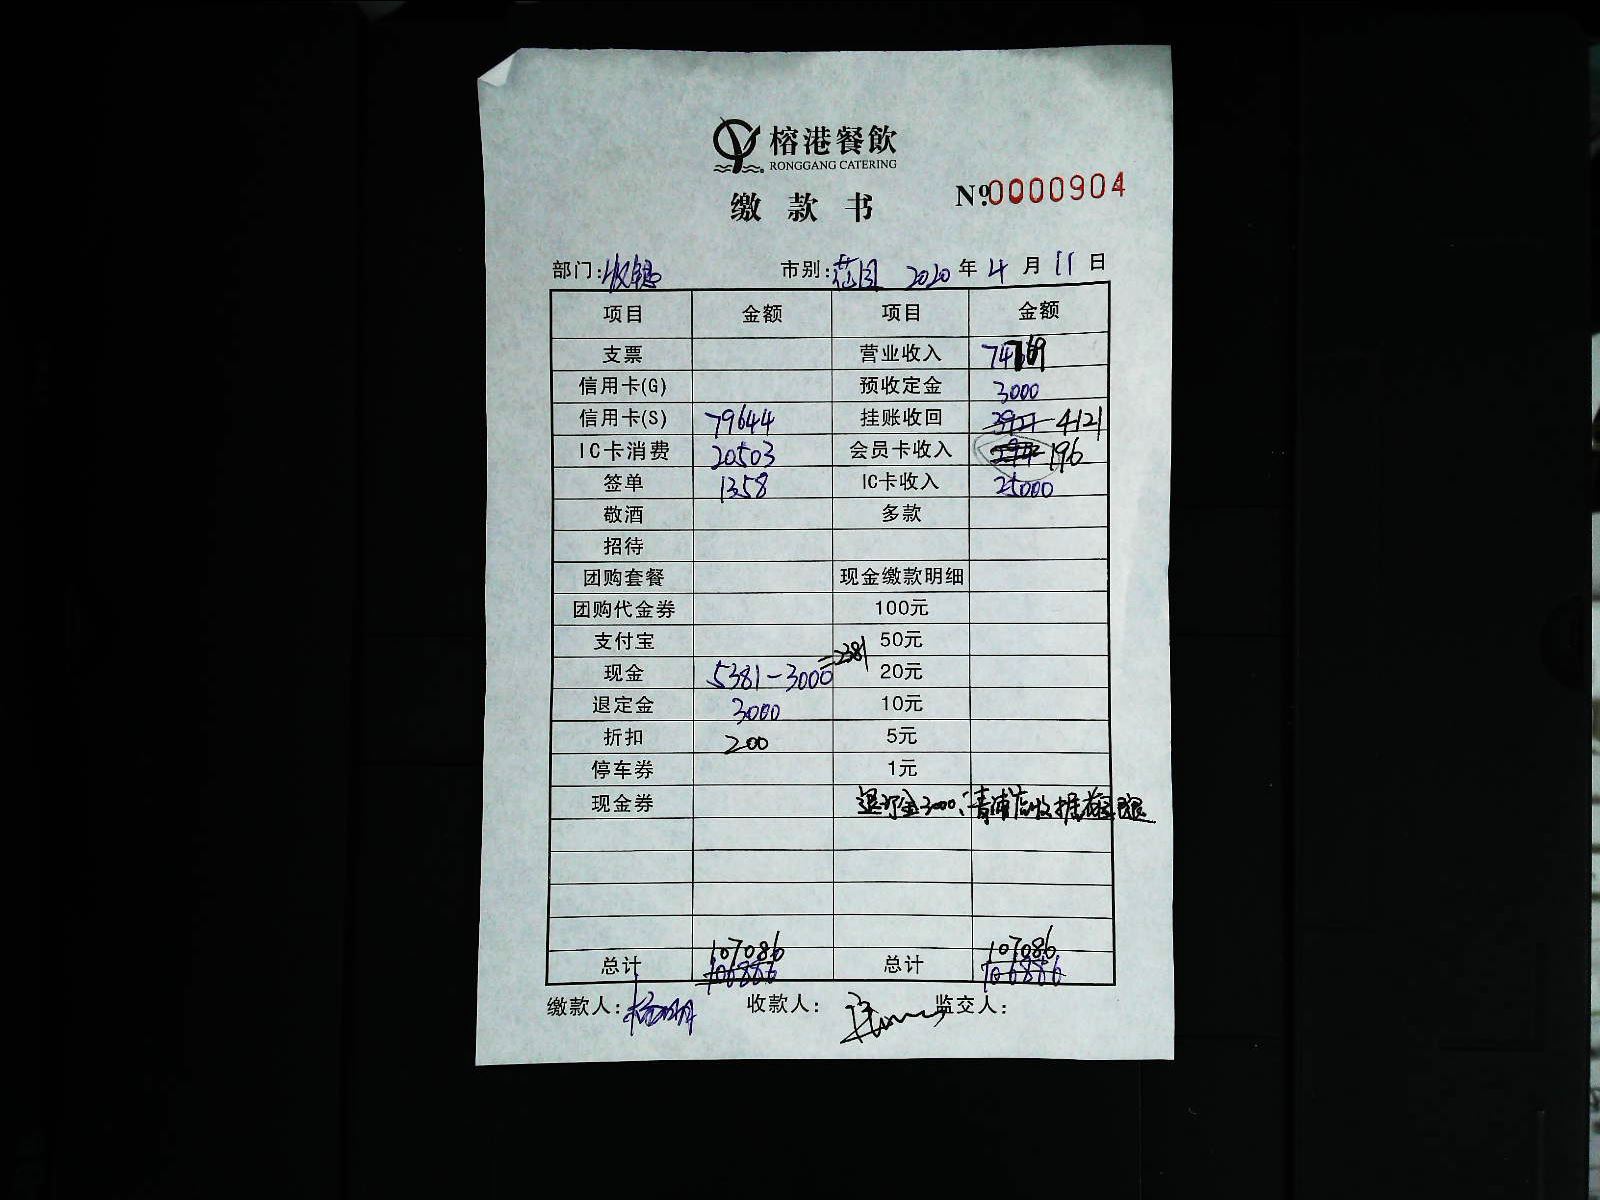 榕港餐飲
RONGGANG CATERING
缴款书
No.0000904
部门:收银 市别:花园 2020年4月11日
项目 金额 项目 金额
支票 营业收入 74769
信用卡(G) 预收定金 3000
信用卡(S) 79644 挂账收回 3921 4121
IC卡消费 20503 会员卡收入 196
签单 1358 IC卡收入 25000
敬酒 多款
招待
团购套餐 现金缴款明细
团购代金券 100元
支付宝 50元
现金 5381-3000=2381 20元
退定金 3000 10元
折扣 200 5元
停车券 1元
现金券 退订金3000:青浦店收据
107086 107086
总计 106886 总计 106886
缴款人: 收款人: 监交人: